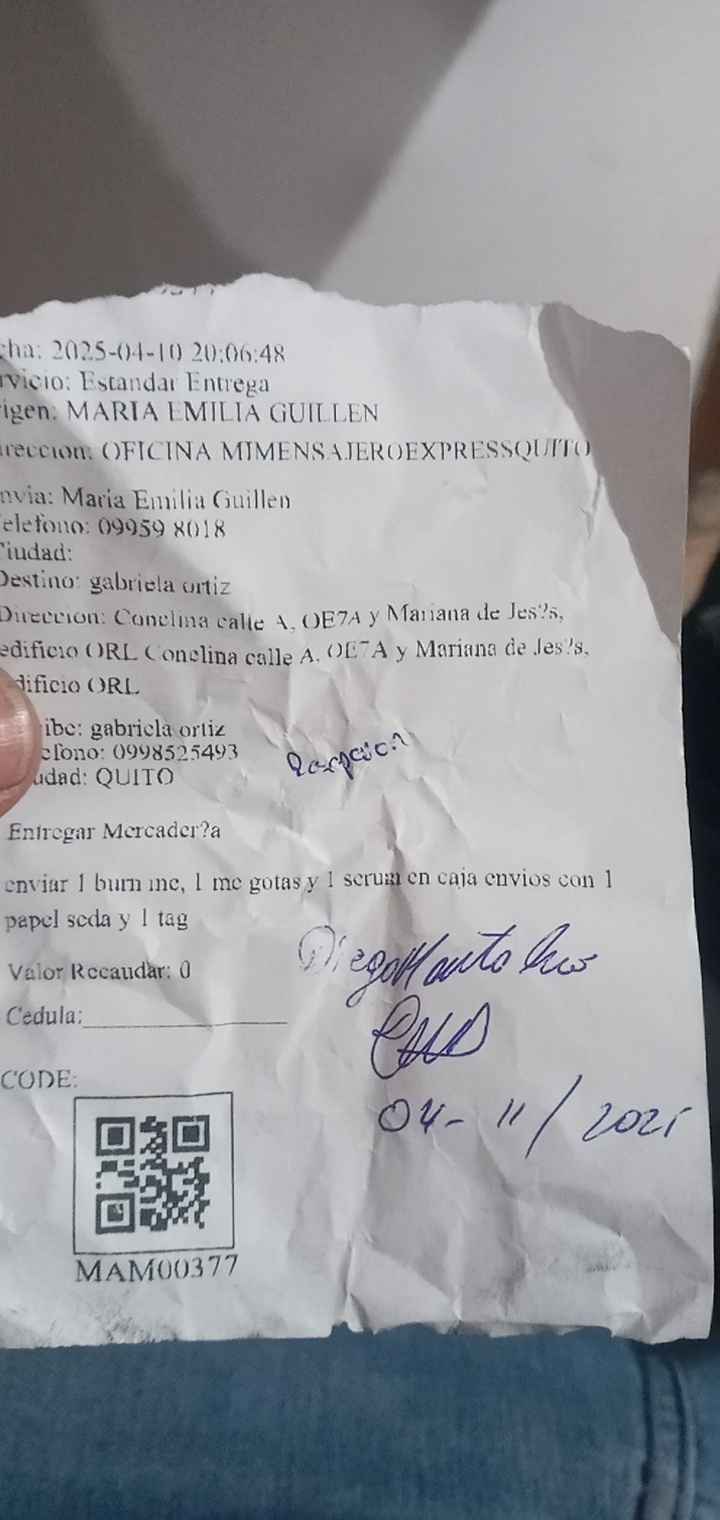 cha: 2025-04-10 20:06:48
rvicio: Estandar Entrega
rigen: MARIA EMILIA GUILLEN
ireccion: OFICINA MIMENSAJEROEXPRESSQUITO
nvia: Maria Emilia Guillen
elefono: 09959 8018
Ciudad:
Destino: gabriela ortiz
Direccion: Conclina calle A, OE7A y Mariana de Jes?s,
edificio ORL Conclina calle A, OE7A y Mariana de Jes?s,
dificio ORL
ibe: gabriela ortiz
efono: 0998525493
udad: QUITO
Entregar Mercader?a
enviar 1 burn me, 1 me gotas y 1 serum en caja envios con 1
papel seda y 1 tag
Diego
Valor Recaudar: 0
Cedula:
CODE:
04-11/2025
MAM00377